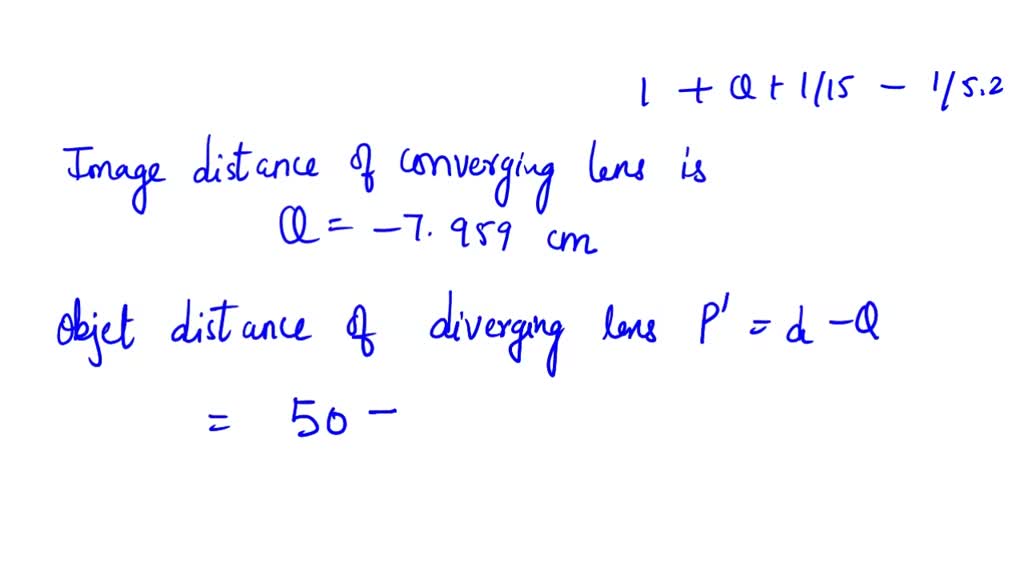 1 + Q + 1/15 - 1/5.2
Image distance of converging lens is
Q = -7.959 cm
Objet distance of diverging lens P' = d - Q
= 50 -